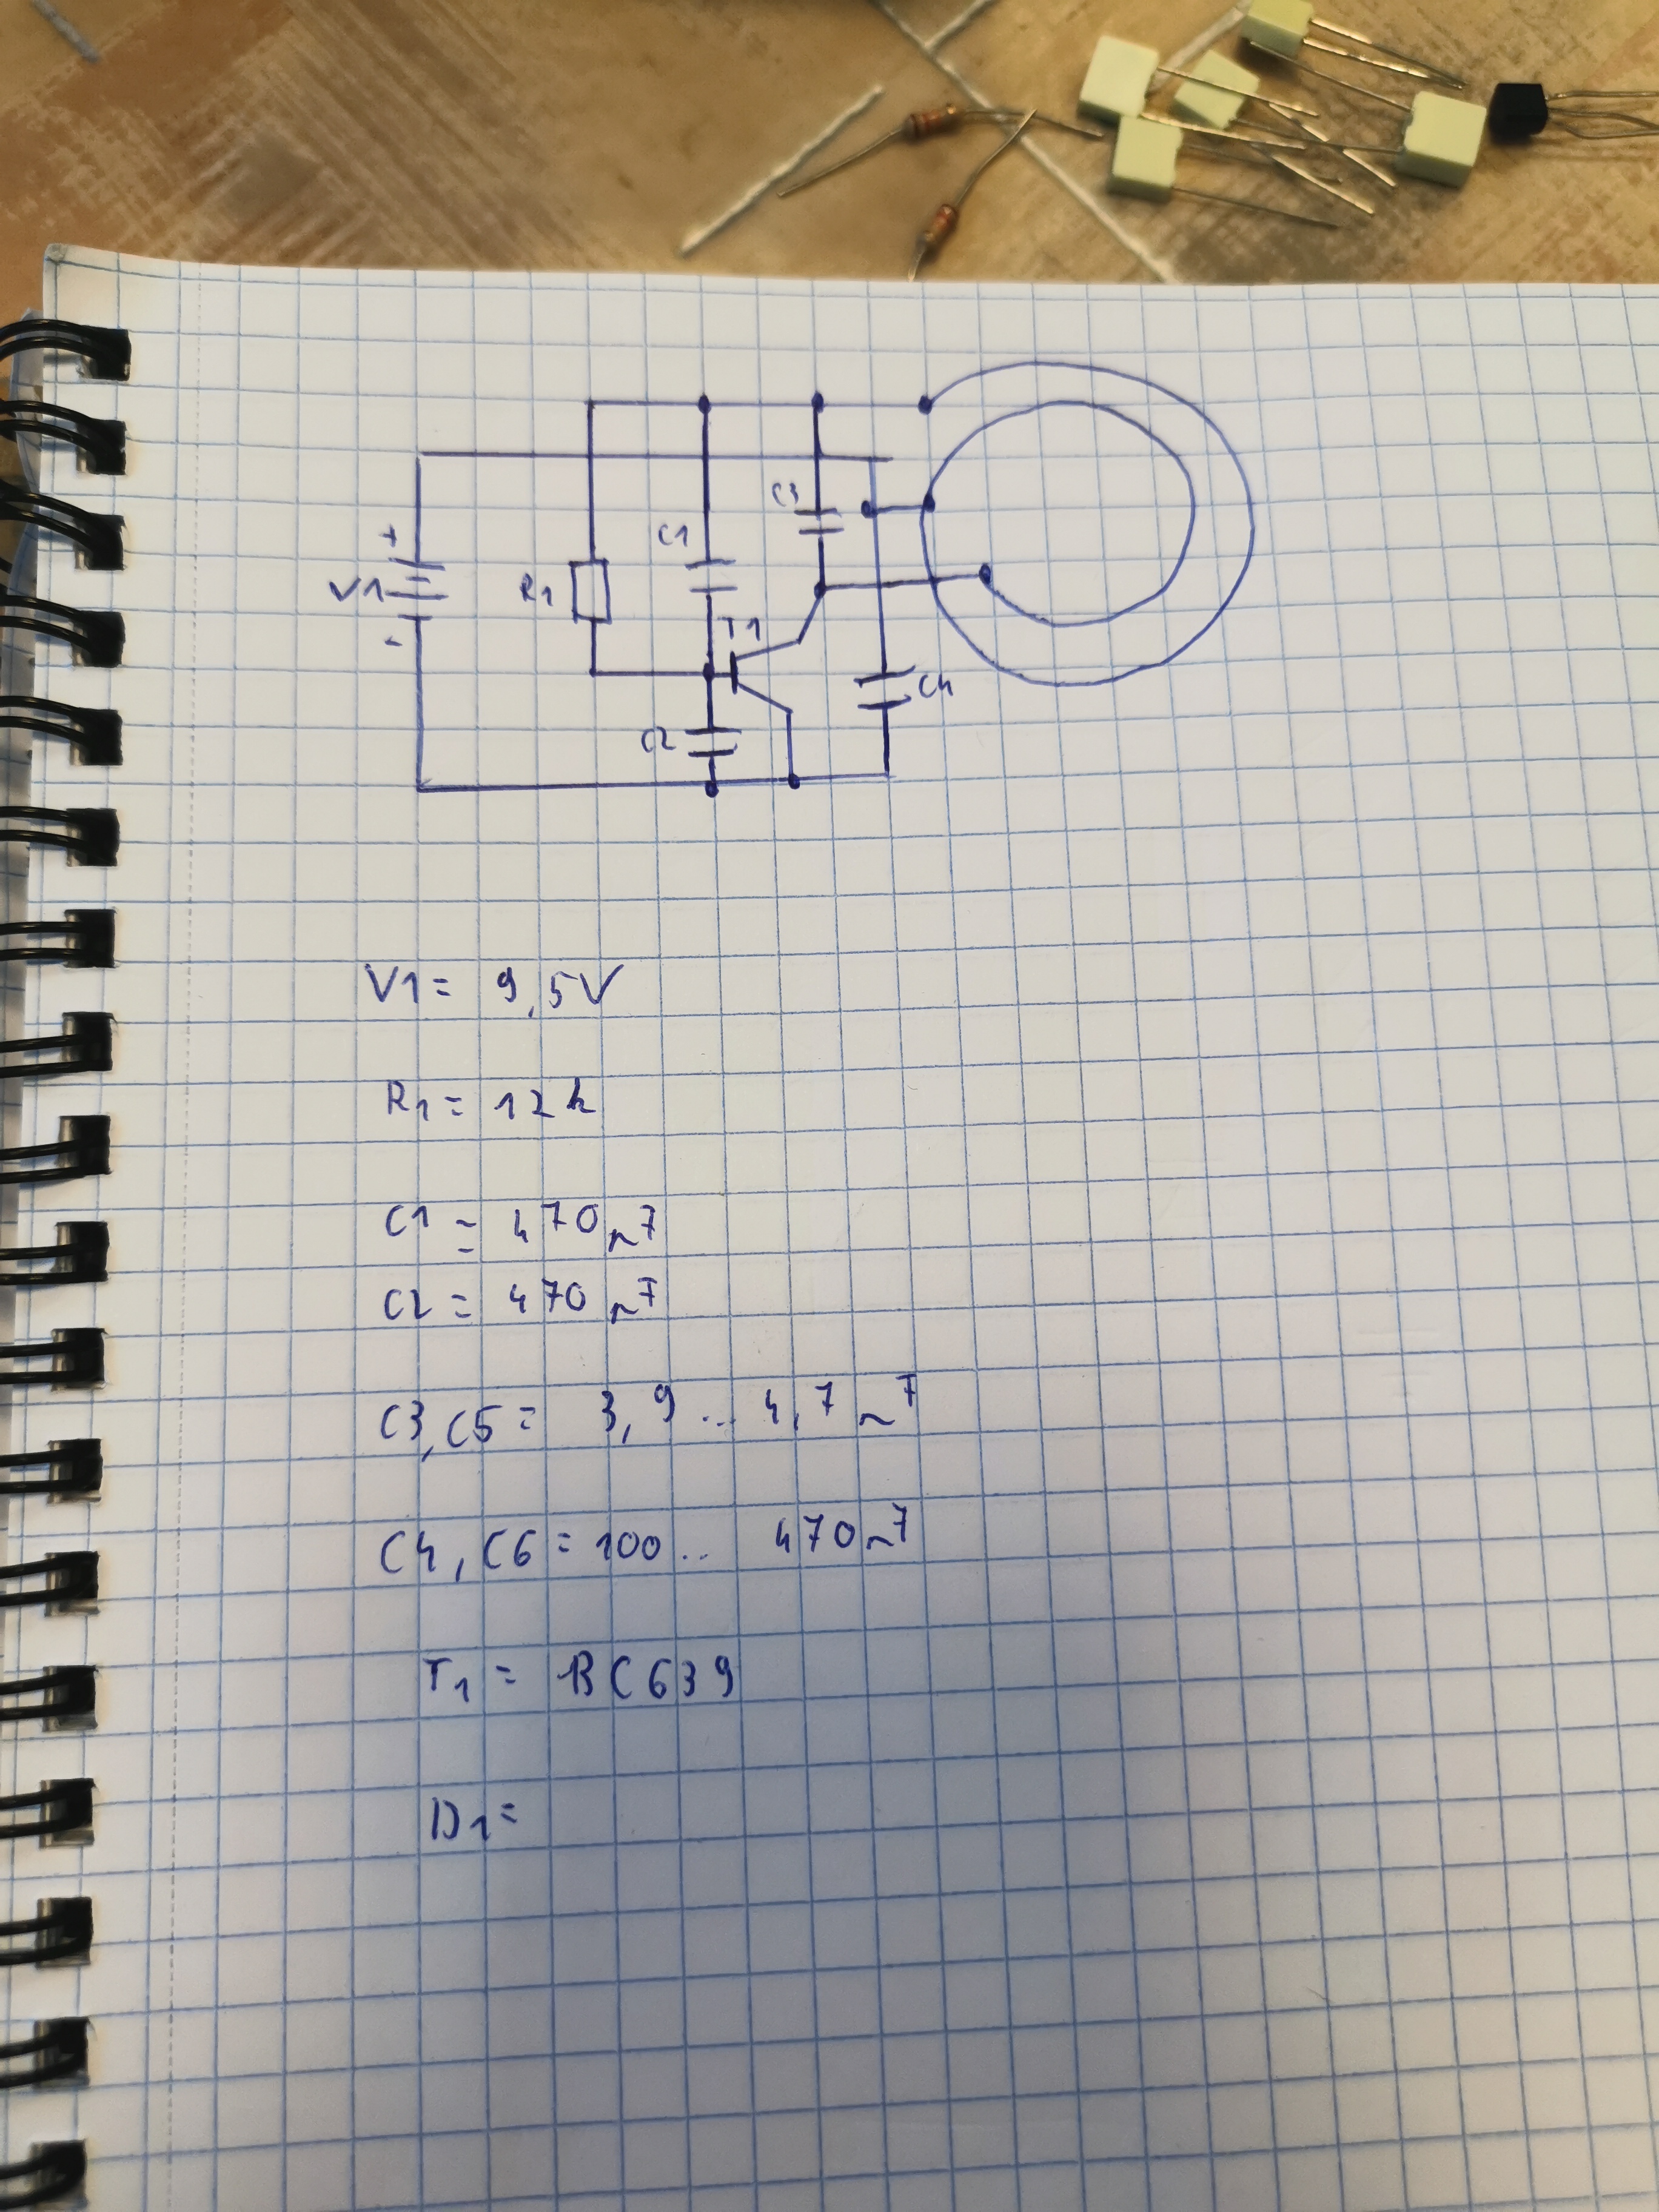 C3
+
C1
V1
R1
T1
-
C4
C2
V1 = 9,5V
R1 = 12k
C1 = 470nF
C2 = 470nF
C3, C5 = 3,9 .. 4,7nF
C4, C6 = 100 .. 470nF
T1 = BC639
D1 =